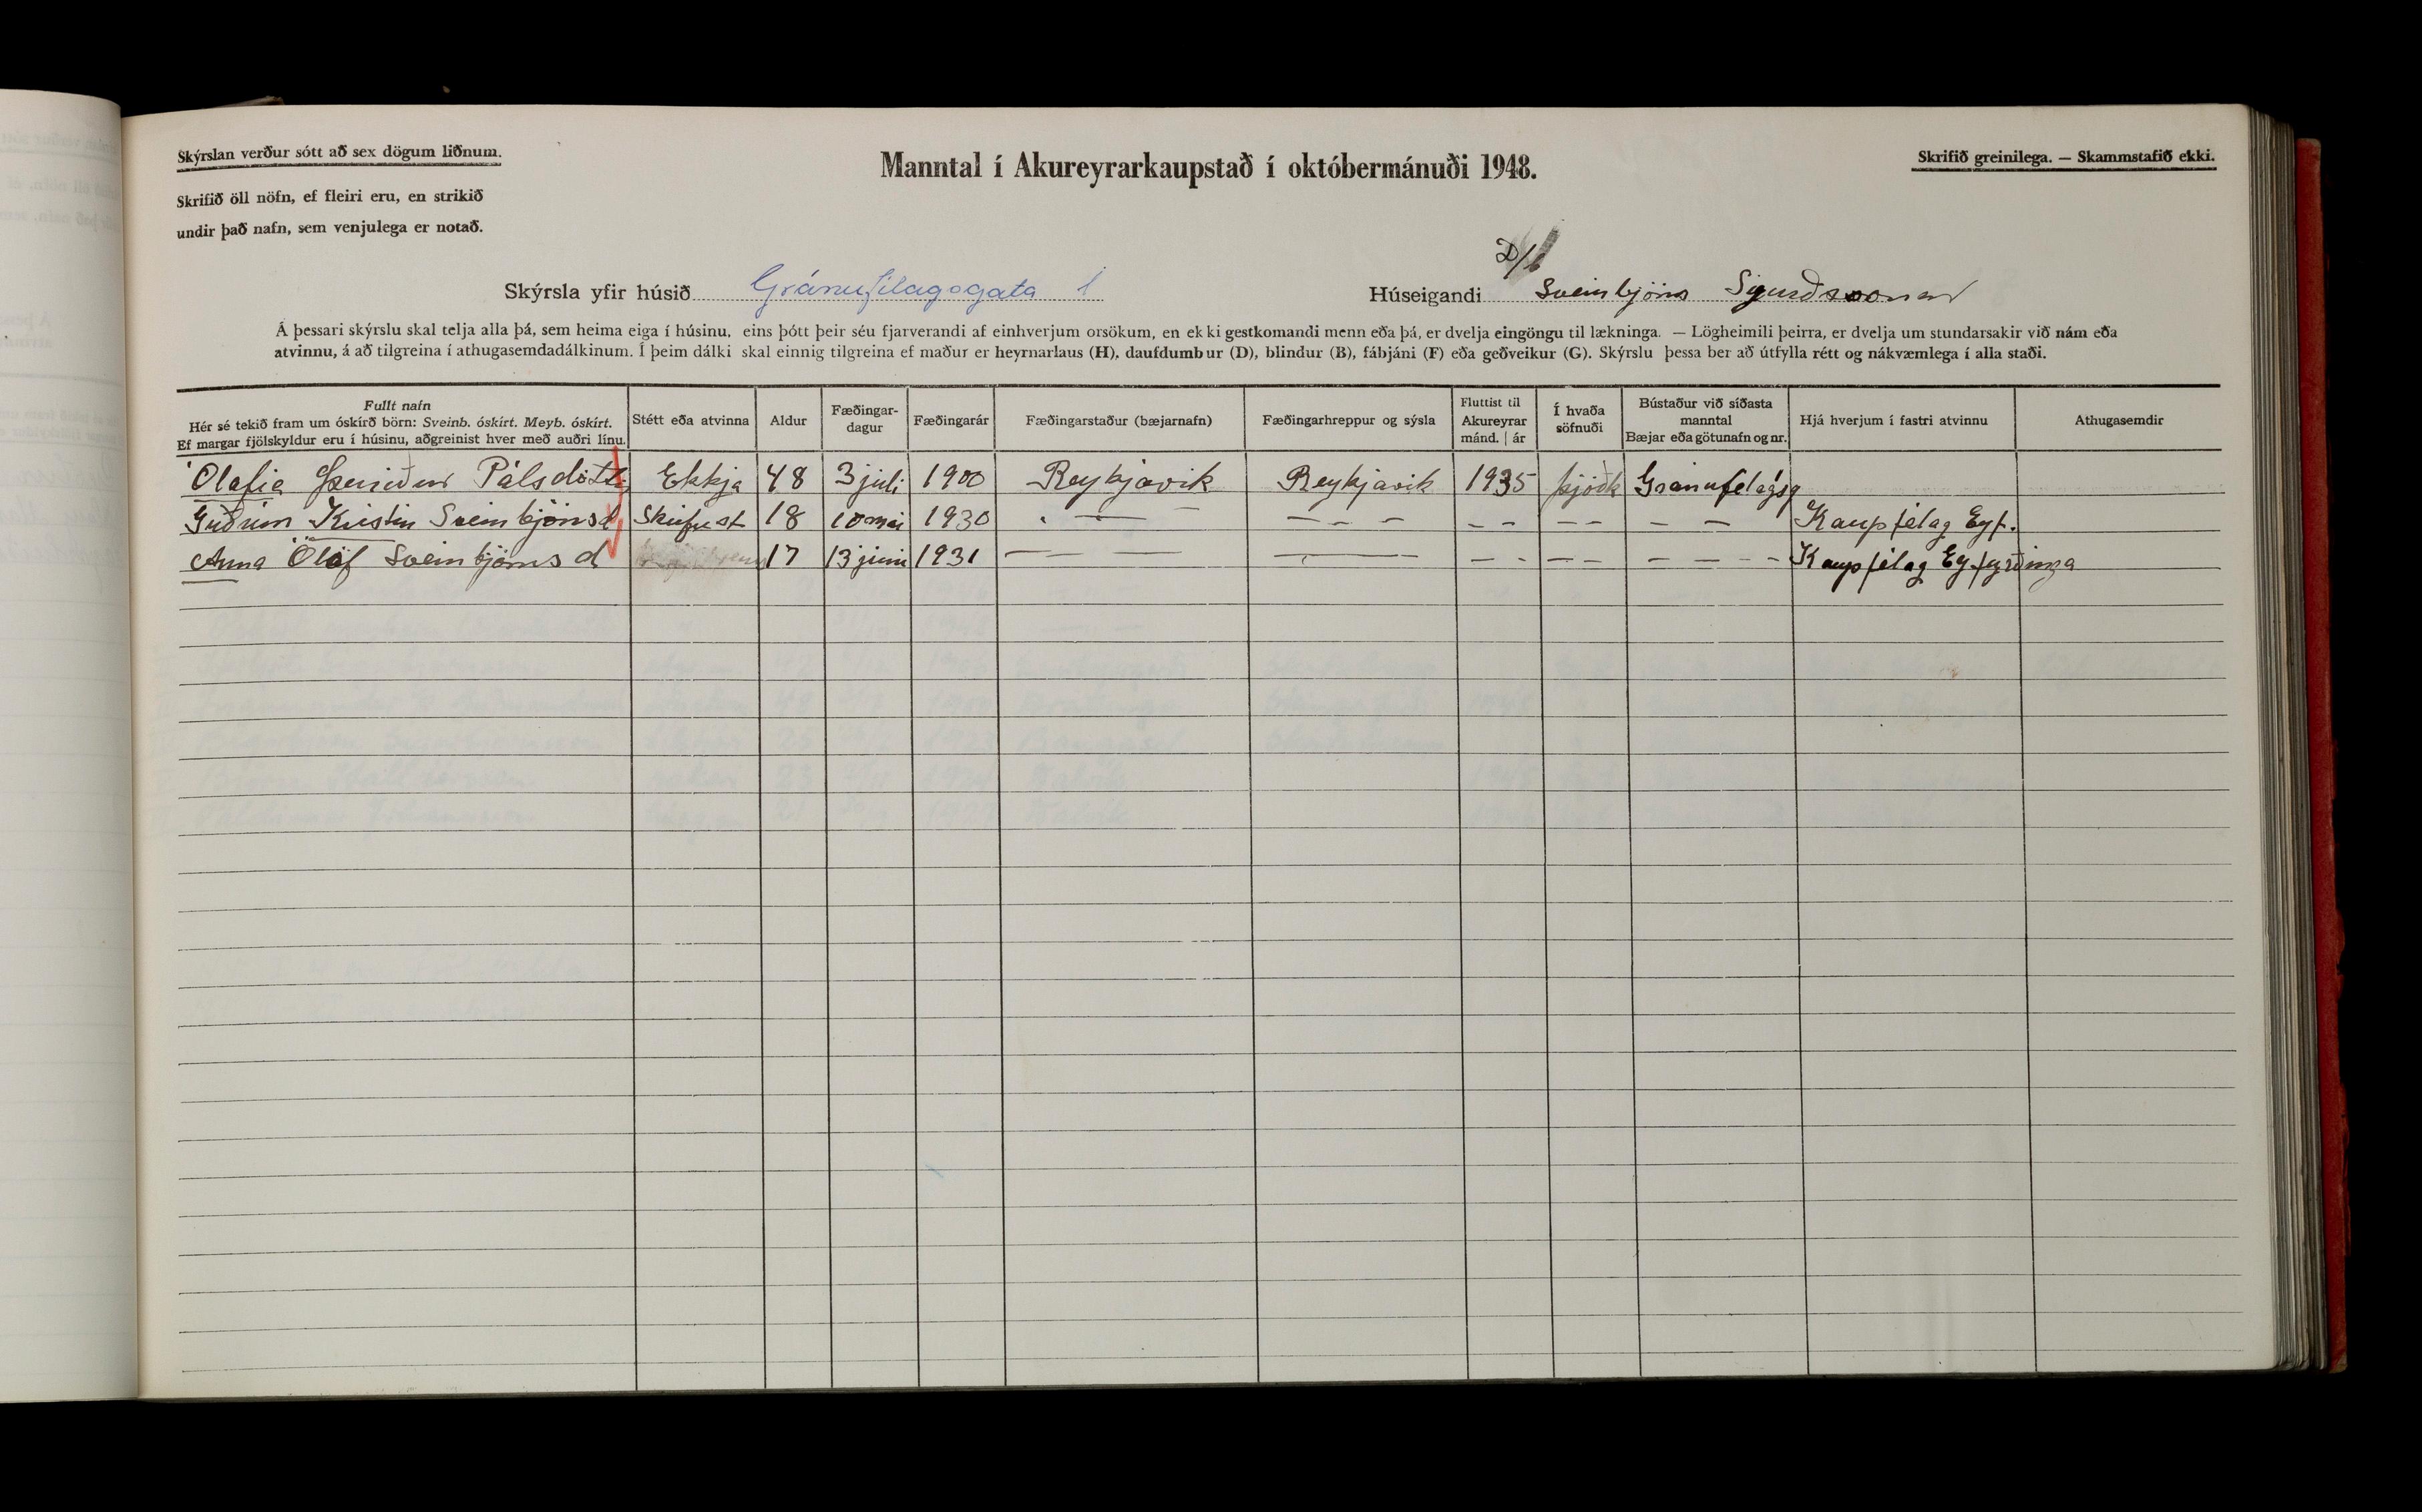 Skýrslan verður sótt að sex dögum liðnum.
Skrifið öll nöfn, ef fleiri eru, en strikið
undir það nafn, sem venjulega er notað.
Manntal í Akureyrarkaupstað í októbermánuði 1948.
Skrifið greinilega. — Skammstafið ekki.
Skýrsla yfir húsið Gránufélagsgata 1
D/b
Húseigandi Sveinbjörns Sigurðssonar
Á þessari skýrslu skal telja alla þá, sem heima eiga í húsinu, eins þótt þeir séu fjarverandi af einhverjum orsökum, en ekki gestkomandi menn eða þá, er dvelja eingöngu til lækninga. — Lögheimili þeirra, er dvelja um stundarsakir við nám eða
atvinnu, á að tilgreina í athugasemdadálkinum. Í þeim dálki skal einnig tilgreina ef maður er heyrnarlaus (H), daufdumbur (D), blindur (B), fábjáni (F) eða geðveikur (G). Skýrslu þessa ber að útfylla rétt og nákvæmlega í alla staði.
Fullt nafn
Hér sé tekið fram um óskírð börn: Sveinb. óskírt. Meyb. óskírt.
Ef margar fjölskyldur eru í húsinu, aðgreinist hver með auðri línu.
Stétt eða atvinna
Aldur
Fæðingar-
dagur
Fæðingarár
Fæðingarstaður (bæjarnafn)
Fæðingarhreppur og sýsla
Fluttist til
Akureyrar
mánd. | ár
Í hvaða
söfnuði
Bústaður við síðasta
manntal
Bæjar eða götunafn og nr.
Hjá hverjum í fastri atvinnu
Athugasemdir
Ólafia Þuriður Pálsdótti Ekkja 48 3 júli 1900 Reykjavik Reykjavik 1935 þjóðk Gránufélagsg
Guðrún Kristin Sveinbjörnsd Skrifust 18 10 mai 1930 — — — — — — — — — — — Kaupfélag Eyf.
Anna Ólöf Sveinbjörns d 17 13 júni 1931 — — — — — — — — — — — Kaupfélag Eyfyrðinga